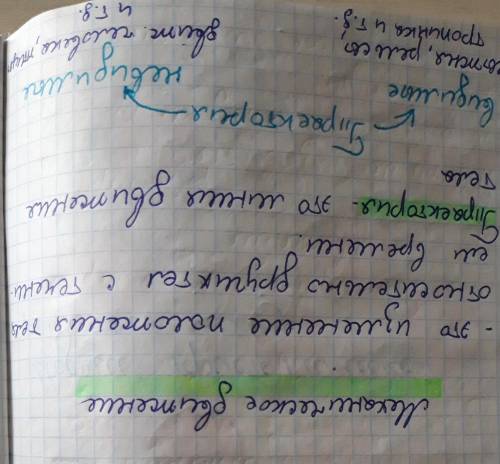 Механическое движение
- это изменение положения тела
относительно других тел с течени-
ем времени.
Траектория - это линия движения
тела
Траектория
видимые невидимые
лыжня, рельсы, движ. человека, птиц
тропинка и т.д. и т.д.